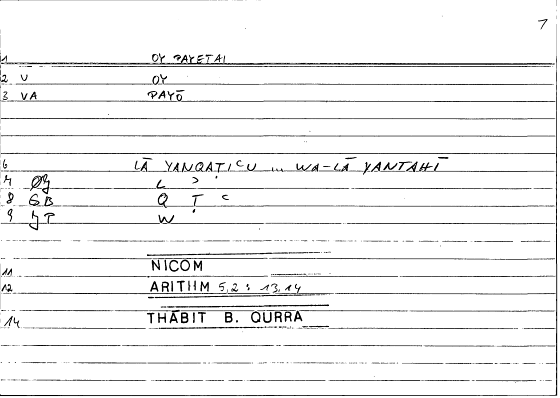 7
1 OY PAYETAI
2 V OY
3 VA PAYŌ
6 LĀ YANQAṬIᶜU ... WA-LĀ YANTAHĪ
7 L ʾ
8 GB Q Ṭ ᶜ
9 W
11 NICOM
12 ARITHM 5,2 : 13,14
14 THĀBIT B. QURRA